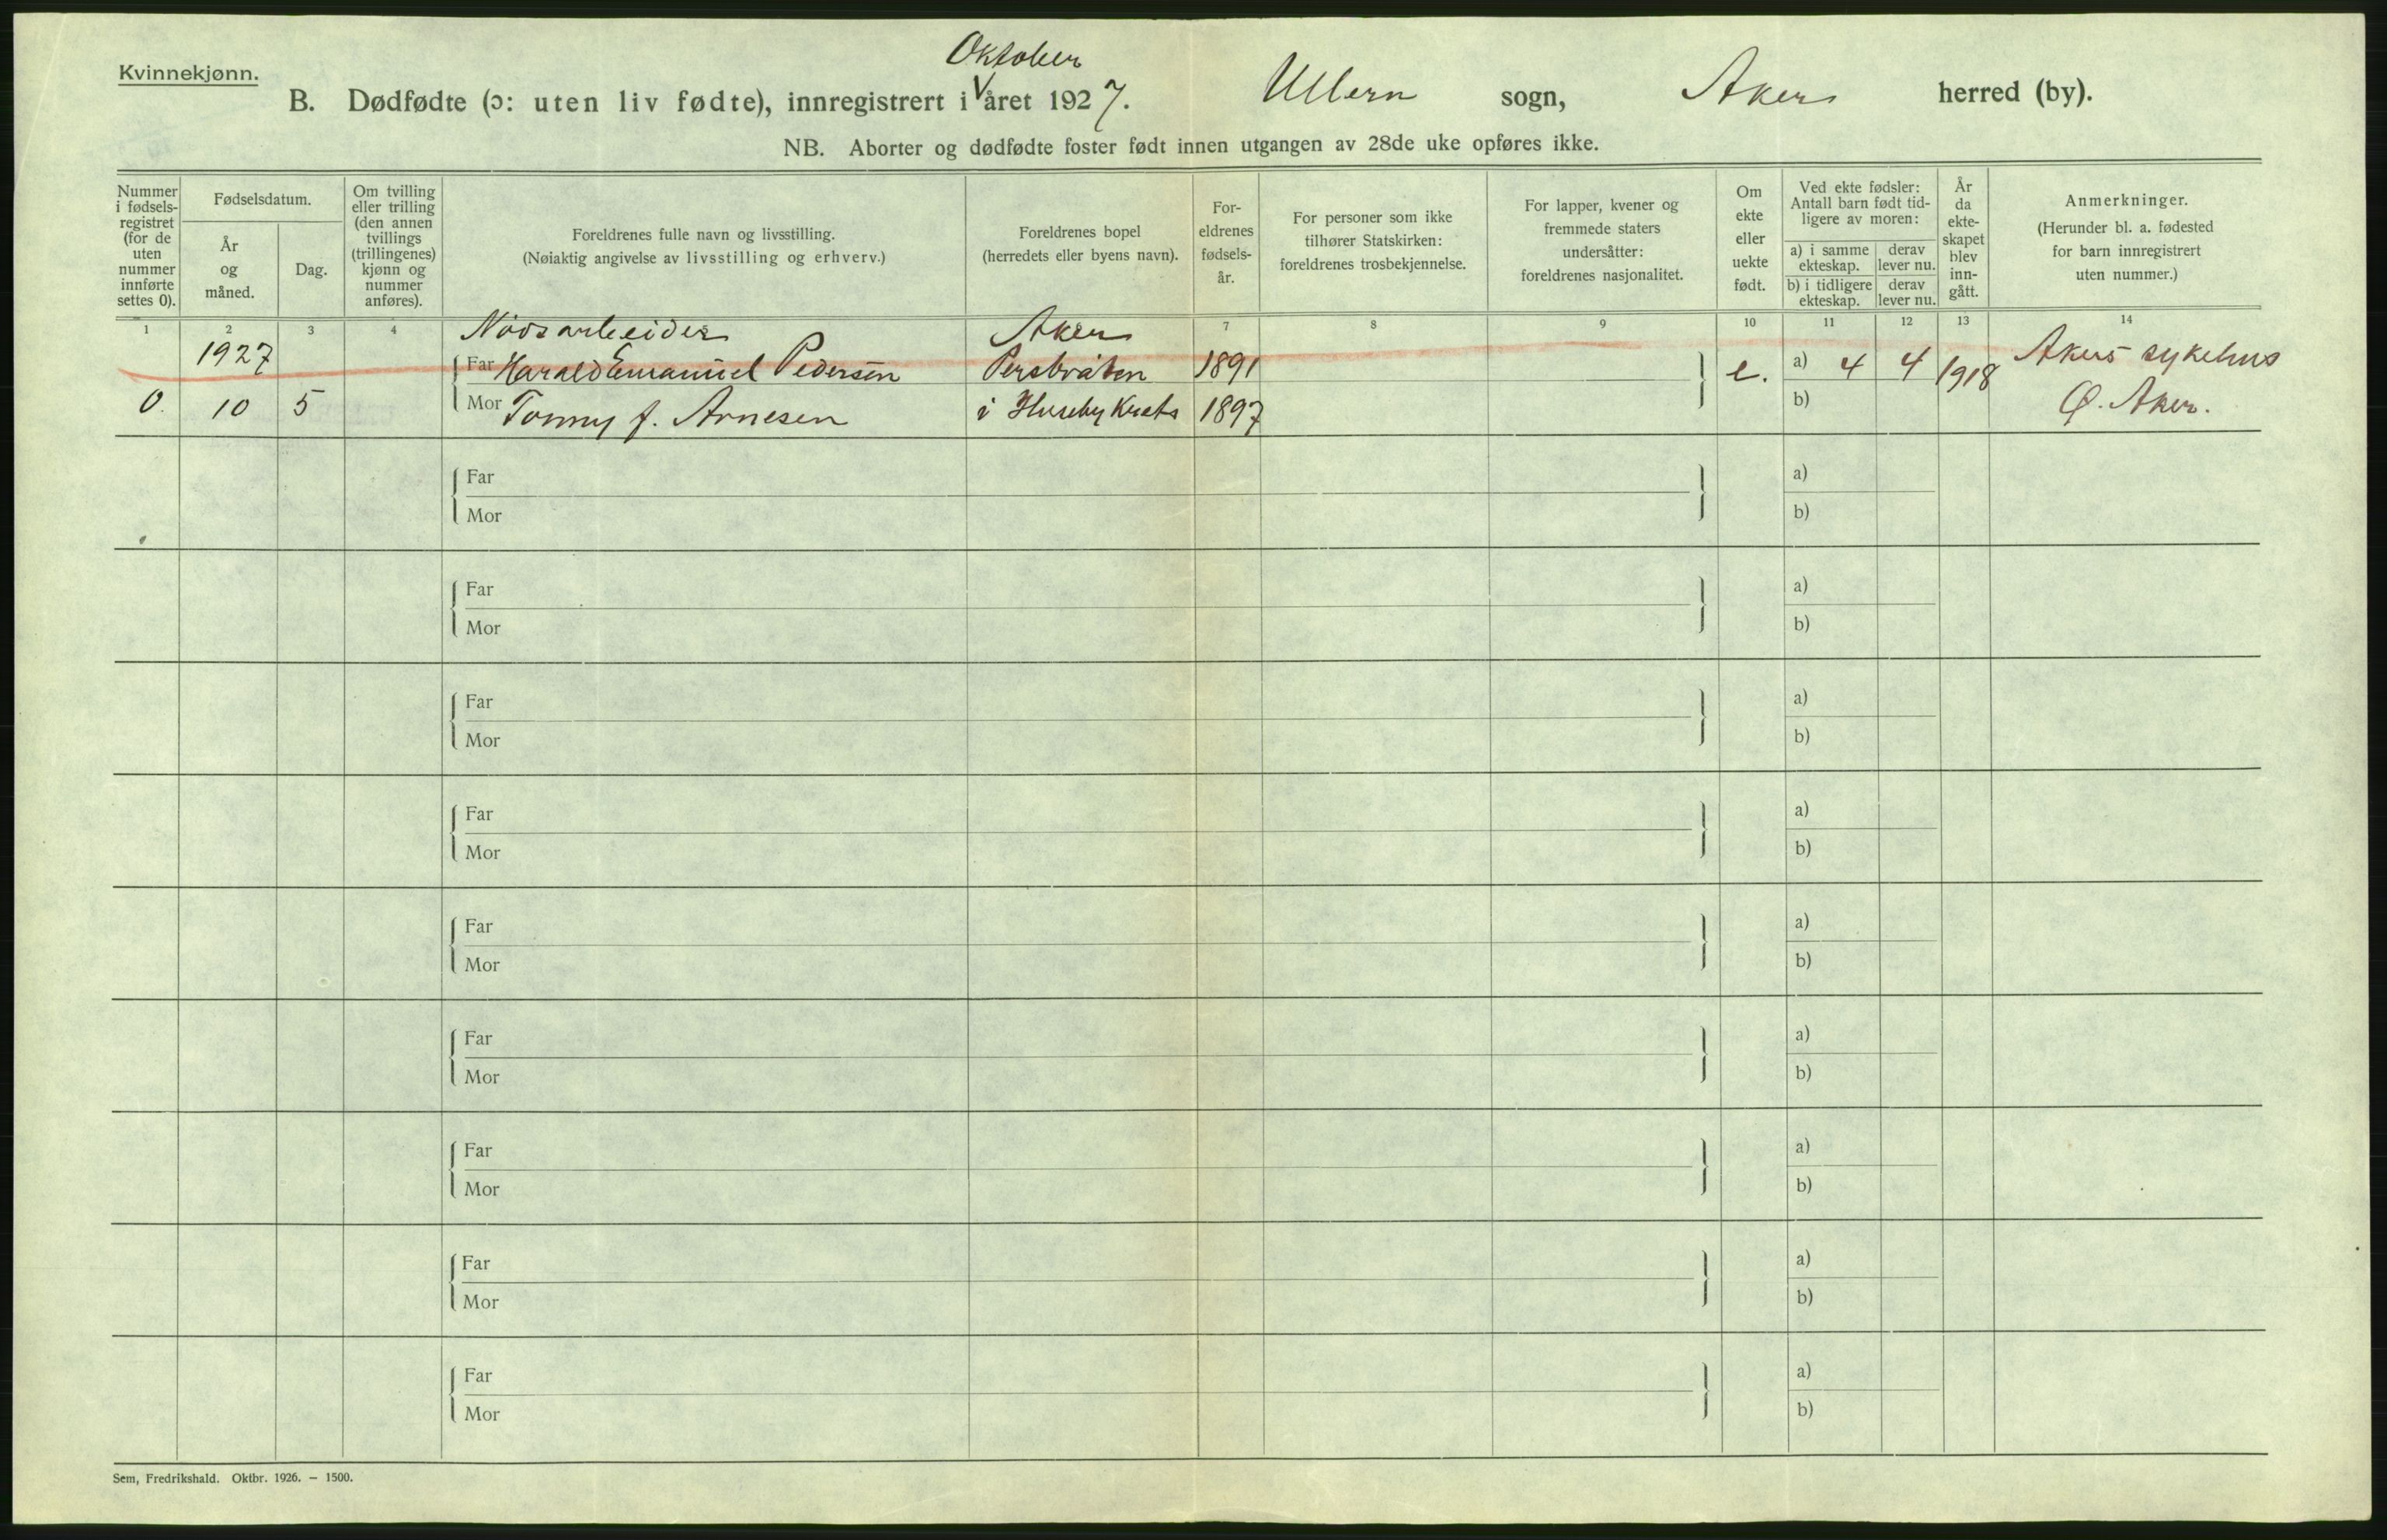 Kvinnekjønn.
Oktober
B. Dødfødte (ɔ: uten liv fødte), innregistrert i V året 1927. Ullern sogn, Aker herred (by).
NB. Aborter og dødfødte foster født innen utgangen av 28de uke opføres ikke.
Nummer i fødsels- registret (for de uten nummer innførte settes 0).
Fødselsdatum.
År og måned.
Dag.
Om tvilling eller trilling (den annen tvillings (trillingenes) kjønn og nummer anføres).
Foreldrenes fulle navn og livsstilling.
(Nøiaktig angivelse av livsstilling og erhverv.)
Foreldrenes bopel
(herredets eller byens navn).
For- eldrenes fødsels- år.
For personer som ikke tilhører Statskirken: foreldrenes trosbekjennelse.
For lapper, kvener og fremmede staters undersåtter: foreldrenes nasjonalitet.
Om ekte eller uekte født.
Ved ekte fødsler: Antall barn født tid- ligere av moren:
a) i samme ekteskap.
derav lever nu.
b) i tidligere ekteskap.
derav lever nu.
År da ekte- skapet blev inn- gått.
Anmerkninger.
(Herunder bl. a. fødested for barn innregistrert uten nummer.)
1 2 3 4 7 8 9 10 11 12 13 14
Nødsarbeider Aker
1927 Far Harald Emanuel Pedersen Persbråten 1891 e. a) 4 4 1918 Akers sykehus
0. 10 5 Mor Tonny f. Arnesen i Huseby Krets 1897 b) Ø. Aker.
Far a)
Mor b)
Far a)
Mor b)
Far a)
Mor b)
Far a)
Mor b)
Far a)
Mor b)
Far a)
Mor b)
Far a)
Mor b)
Far a)
Mor b)
Far a)
Mor b)
Sem, Fredrikshald. Oktbr. 1926. — 1500.